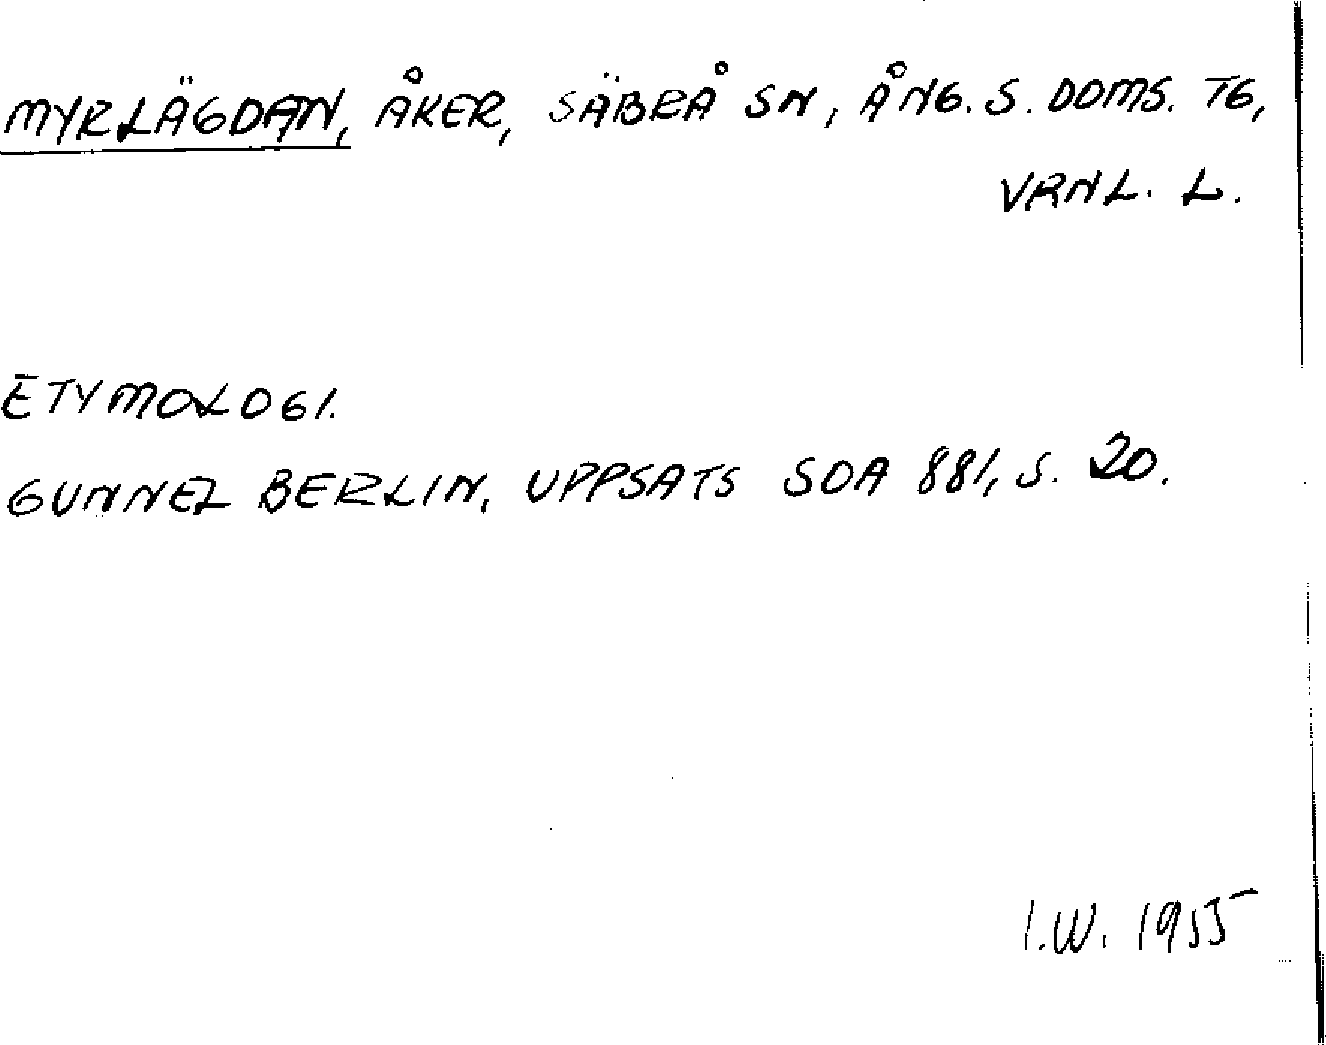 MYRLÄGDAN, ÅKER, SÄBRÅ SN, ÅNG. S. DOMS. TG,
VRNL. L.
ETYMOLOGI.
GUNNEL BERLIN, UPPSATS SOA 881, S. 20.
I.W. 1955